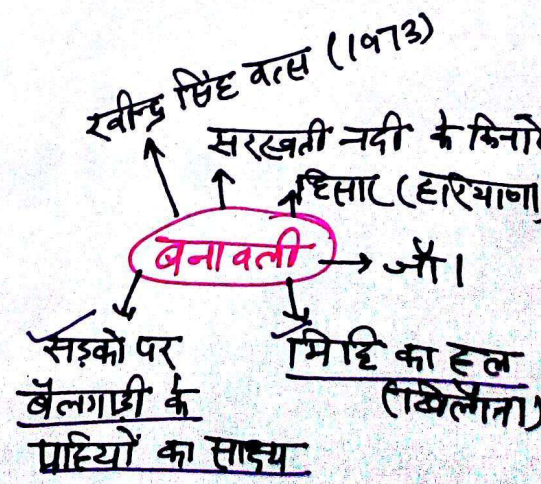 रवीन्द्र सिंह वत्स (1973)
सरस्वती नदी के किनारे
हिसार (हरियाणा)
बनावली
जौ।
सड़को पर
बैलगाडी के
पहियों का साक्ष्य
मिट्टि का हल
(खिलौना)